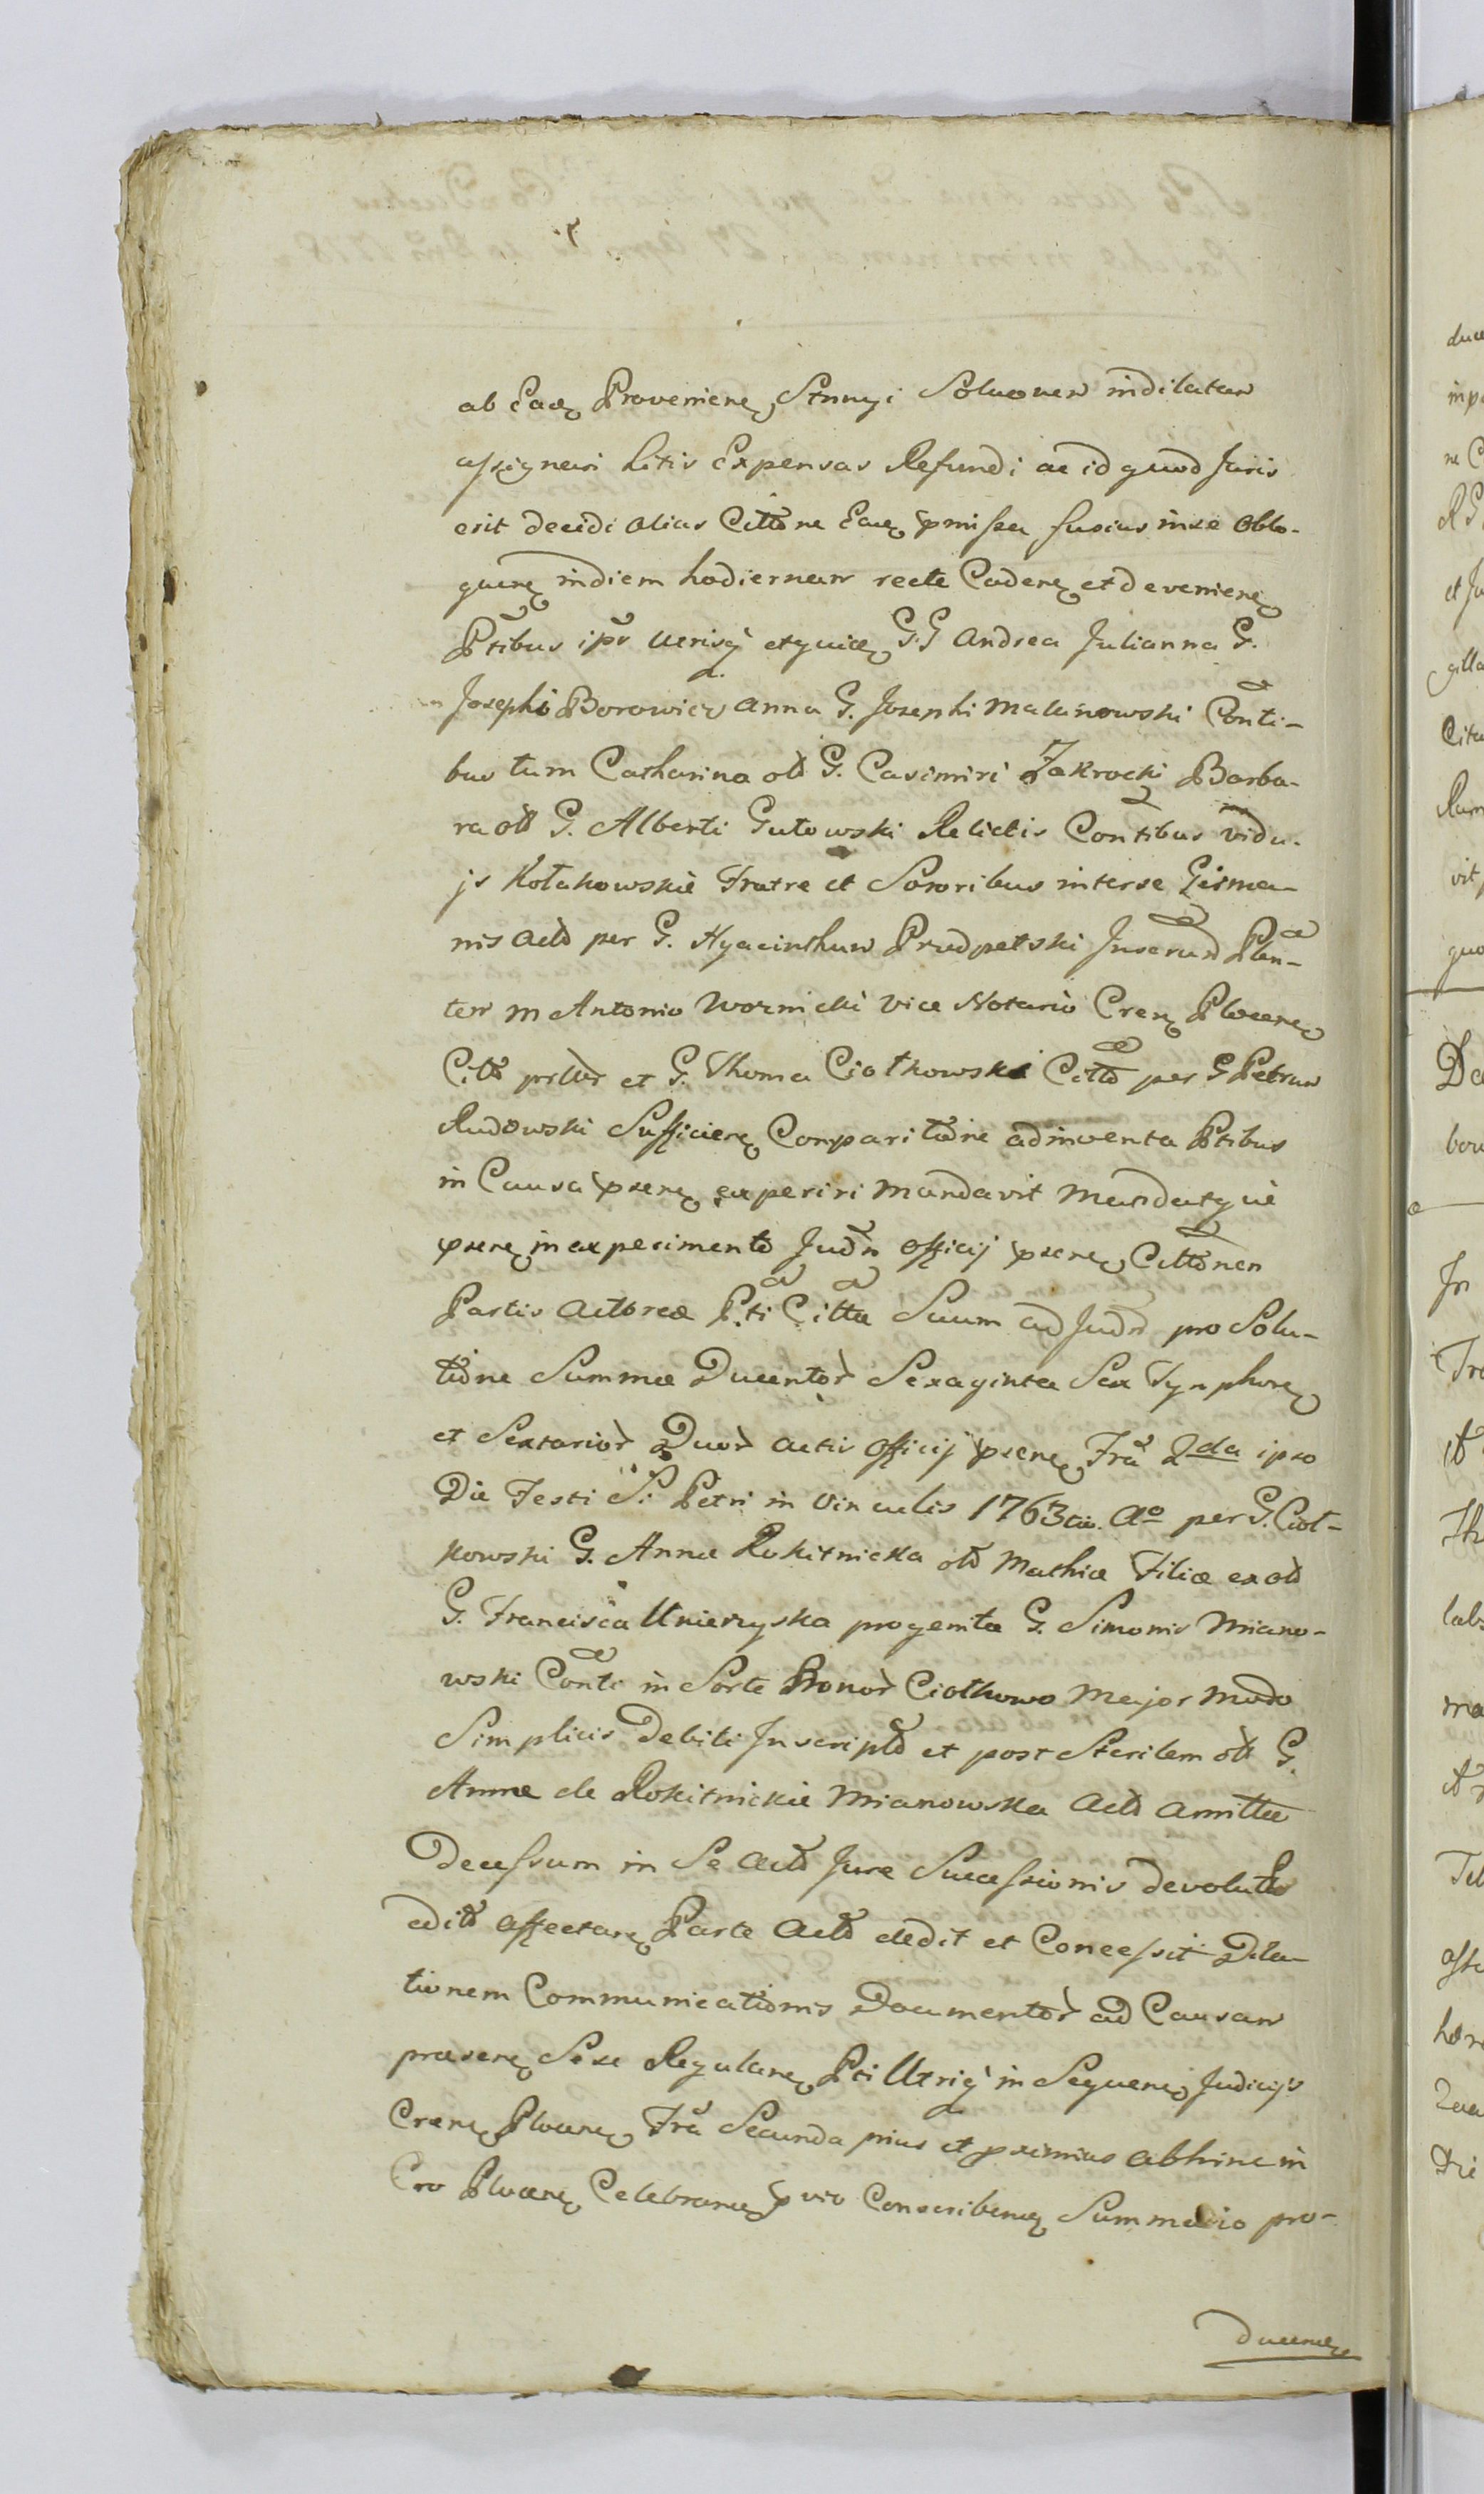 ab Eadz Provenienz Stnnyi Soluonen indilatam
assignari Litis Expensas Refundi ac id quod Juris
erit decidi alias Cittōne Eadz pmissa fusius in se oblo-
quenz in diem hodiernam recte Cadenz et devenienz
Ptibus ips verisq etquidz G.G Andrea Julianna G.
Josephi Borowicz Anna G. Josephi Malanowski Conti-
bus tum Catharina olt G. Casimiri Zakrocki Barba-
ra olt G. Alberti Gutowski Relictis Contibus vidu-
js Kołakowskie Fratre et Sororibus inter se Germa-
nis Actō per G. Hyacinthum Prudpetski Juserand Plen-
tem M Antonio Woznicki Vice Notario Crenz Plocenz
Cittō et G. Thoma Ciołkowski Cittō per G Petrum
Rudowski Sufficienz Comparitōne adinventa Ptibus
in Causa psenz experiri Mandavit Mandatq ve
psenz in expecimento Judn Officij psenz Cittōnen
Partis Actoreæ Pti Citta Suum ad Judn pro Solu-
tione Summæ Ducentor Sexaginta Sex Tynphorz
et Sextarior Duor Actis Officij psenz Fra 2da ipso
Die Festi S: Petri in Vinculis 1763tii. Aō per G. Cioł-
kowski G. Annæ Rokitnicka olt Mathiæ Filiæ ex olt
G. Francisca Unierzyska progenitæ G. Simonis Miano-
wski Conti in Sorte Bonor Ciołkowo Major Modo
Simplicis Debiti Inscriptō et post Sterilem olt G.
Annæ de Rokitnickie Mianowska Actō Amittæ
Decessum in Se Actō Jure Successionis devolutō
editō affectanz Parte Actō dedit et Concessit Dila-
tionem Communicationis Documentor ad Causam
præsenz Sese Regulanz Pti Utriq in Sequenz Judicijs
Crenz Plocenz Fra Secunda prius et proximius abhinc in
Cro Plocenz Celebranz Conscribenz Summario pro-
ducenz